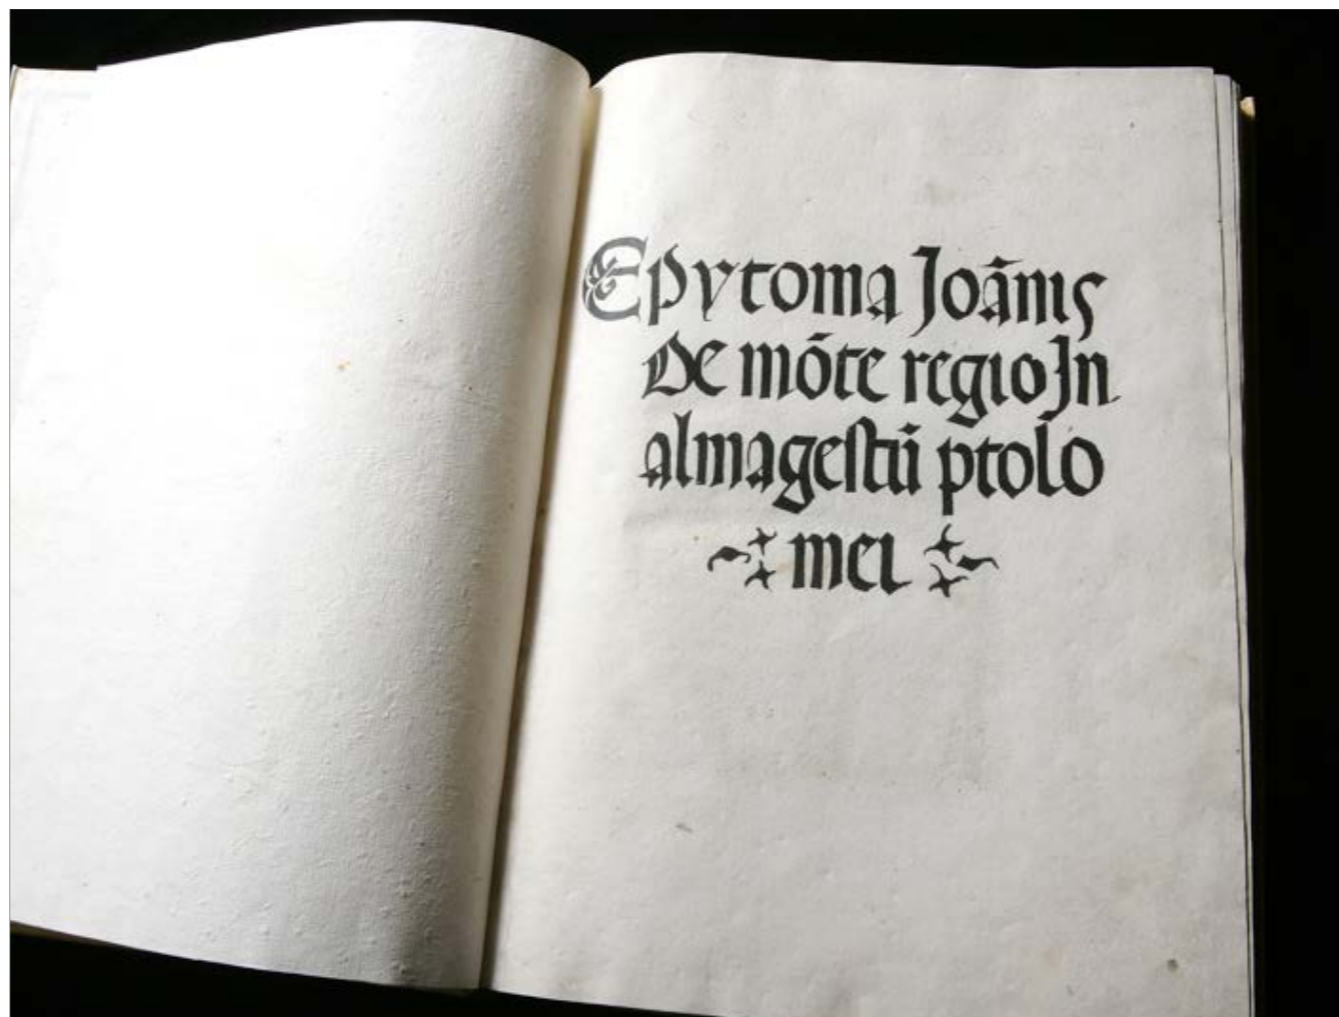 Epytoma Joãnis
De mõte regio In
almagestũ ptolo
mei